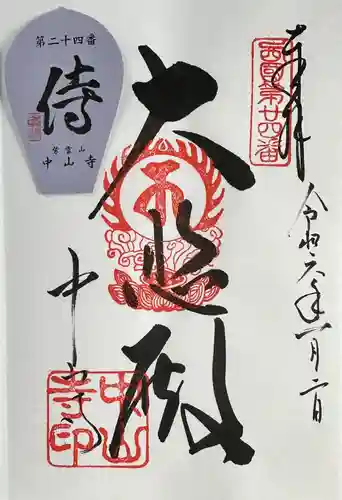 奉拝
西国第廿四番
令和六年一月二日
大悲殿
中山寺
中山寺印
第二十四番
侍
紫雲山
中山寺